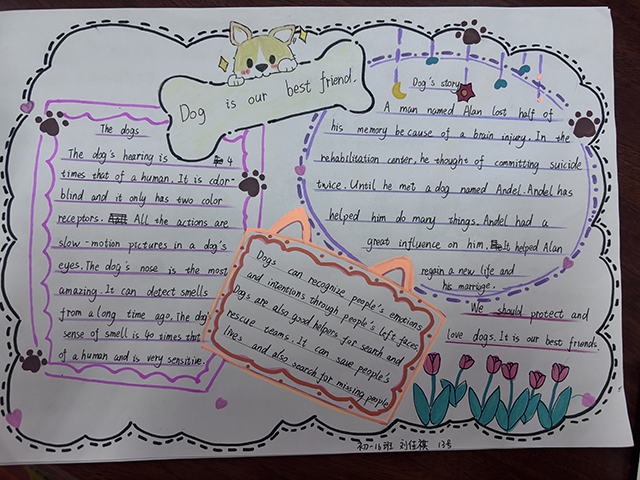 Dog is our best friend.
The dogs
The dog's hearing is 4
times that of a human. It is color-
blind and it only has two color
receptors. All the actions are
slow-motion pictures in a dog's
eyes. The dog's nose is the most
amazing. It can detect smells
from a long time ago. The dog's
sense of smell is 40 times that
of a human and is very sensitive.
Dogs can recognize people's emotions
and intentions through people's left faces
Dogs are also good helpers for search and
rescue teams. It can save people's
lives and also search for missing people
Dog's story
A man named Alan lost half of
his memory because of a brain injury. In the
rehabilitation center, he thought of committing suicide
twice. Until he met a dog named Andel. Andel has
helped him do many things. Andel had a
great influence on him. It helped Alan
regain a new life and
his marriage.
We should protect and
love dogs. It is our best friends.
初一16班 刘佳祺 13号